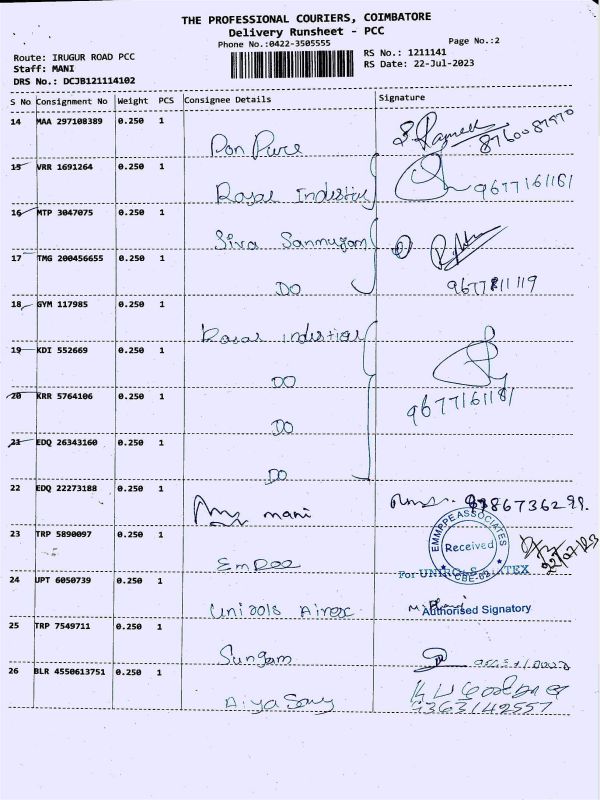 THE PROFESSIONAL COURIERS, COIMBATORE
Delivery Runsheet - PCC
Phone No.:0422-3505555
Page No.:2
Route: IRUGUR ROAD PCC
Staff: MANI
DRS No.: DCJB121114102
RS No.: 1211141
RS Date: 22-Jul-2023
S No Consignment No Weight PCS Consignee Details Signature
14 MAA 297108389 0.250 1
Pon Pure 8760087970
15 VRR 1691264 0.250 1
Rosar Industries 9677161181
16 MTP 3047075 0.250 1
Siva Sanmugam
17 TMG 200456655 0.250 1
DO 9677811119
18 GYM 117985 0.250 1
Rosar industies
19 KDI 552669 0.250 1
DO
20 KRR 5764106 0.250 1
DO 9677161181
21 EDQ 26343160 0.250 1
DO
22 EDQ 22273188 0.250 1
mani
23 TRP 5890097 0.250 1
Empee
EMMPPE ASSOCIATES
Received
CBE-62
22/07/23
24 UPT 6050739 0.250 1
For
Authorised Signatory
25 TRP 7549711 0.250 1
Sungam
26 BLR 4550613751 0.250 1
Aiya Samy
9363142557